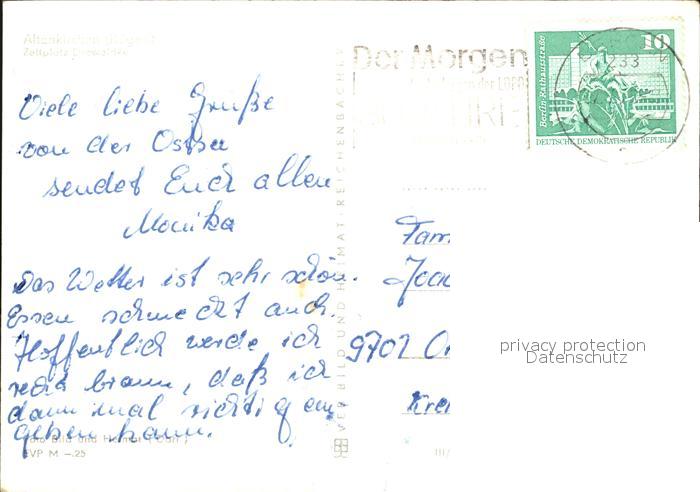 Altenkirchen (Rügen)
Zeltplatz Drewoldke
Viele liebe Grüße
von der Ostsee
sendet Euch allen
Monika
Das Wetter ist sehr schön.
Essen schmeckt auch.
Hoffentlich werde ich
noch braun, daß ich
dann mal richtig an
geben kann.
Foto Bild und Heimat (Darr)
EVP M –.25
VEB BILD UND HEIMAT · REICHENBACH
III/
Der Morgen
der LDPD
10
Berlin-Rathausstraße
DEUTSCHE DEMOKRATISCHE REPUBLIK
233
Fam
Joac
9702
Krei
privacy protection
Datenschutz